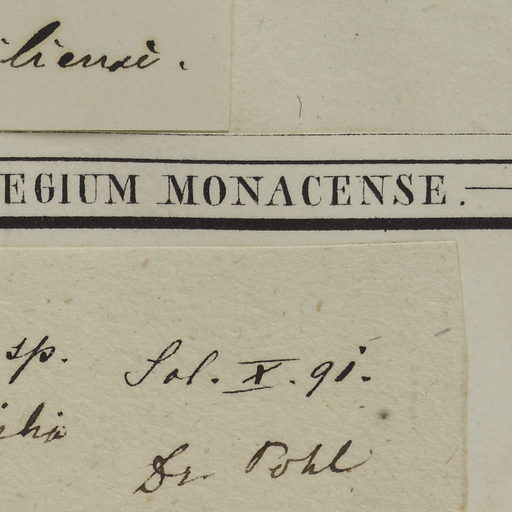 iliensi.
EGIUM MONACENSE.
sp. Sol. X. 91.
Dr. Pohl